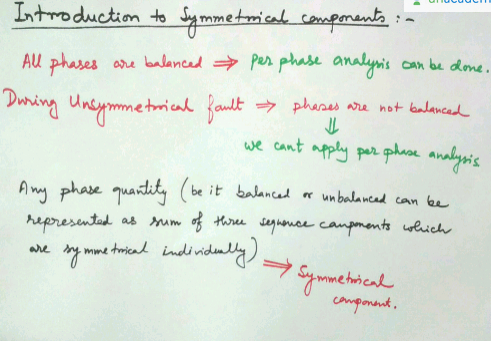 unacadem
Introduction to Symmetrical components :-
All phases are balanced ⇒ Per phase analysis can be done.
During Unsymmetrical fault ⇒ phases are not balanced
⇓
we cant apply per phase analysis
Any phase quantity (be it balanced or unbalanced can be
represented as sum of three sequence components which
are symmetrical individually)
⇒ Symmetrical
component.